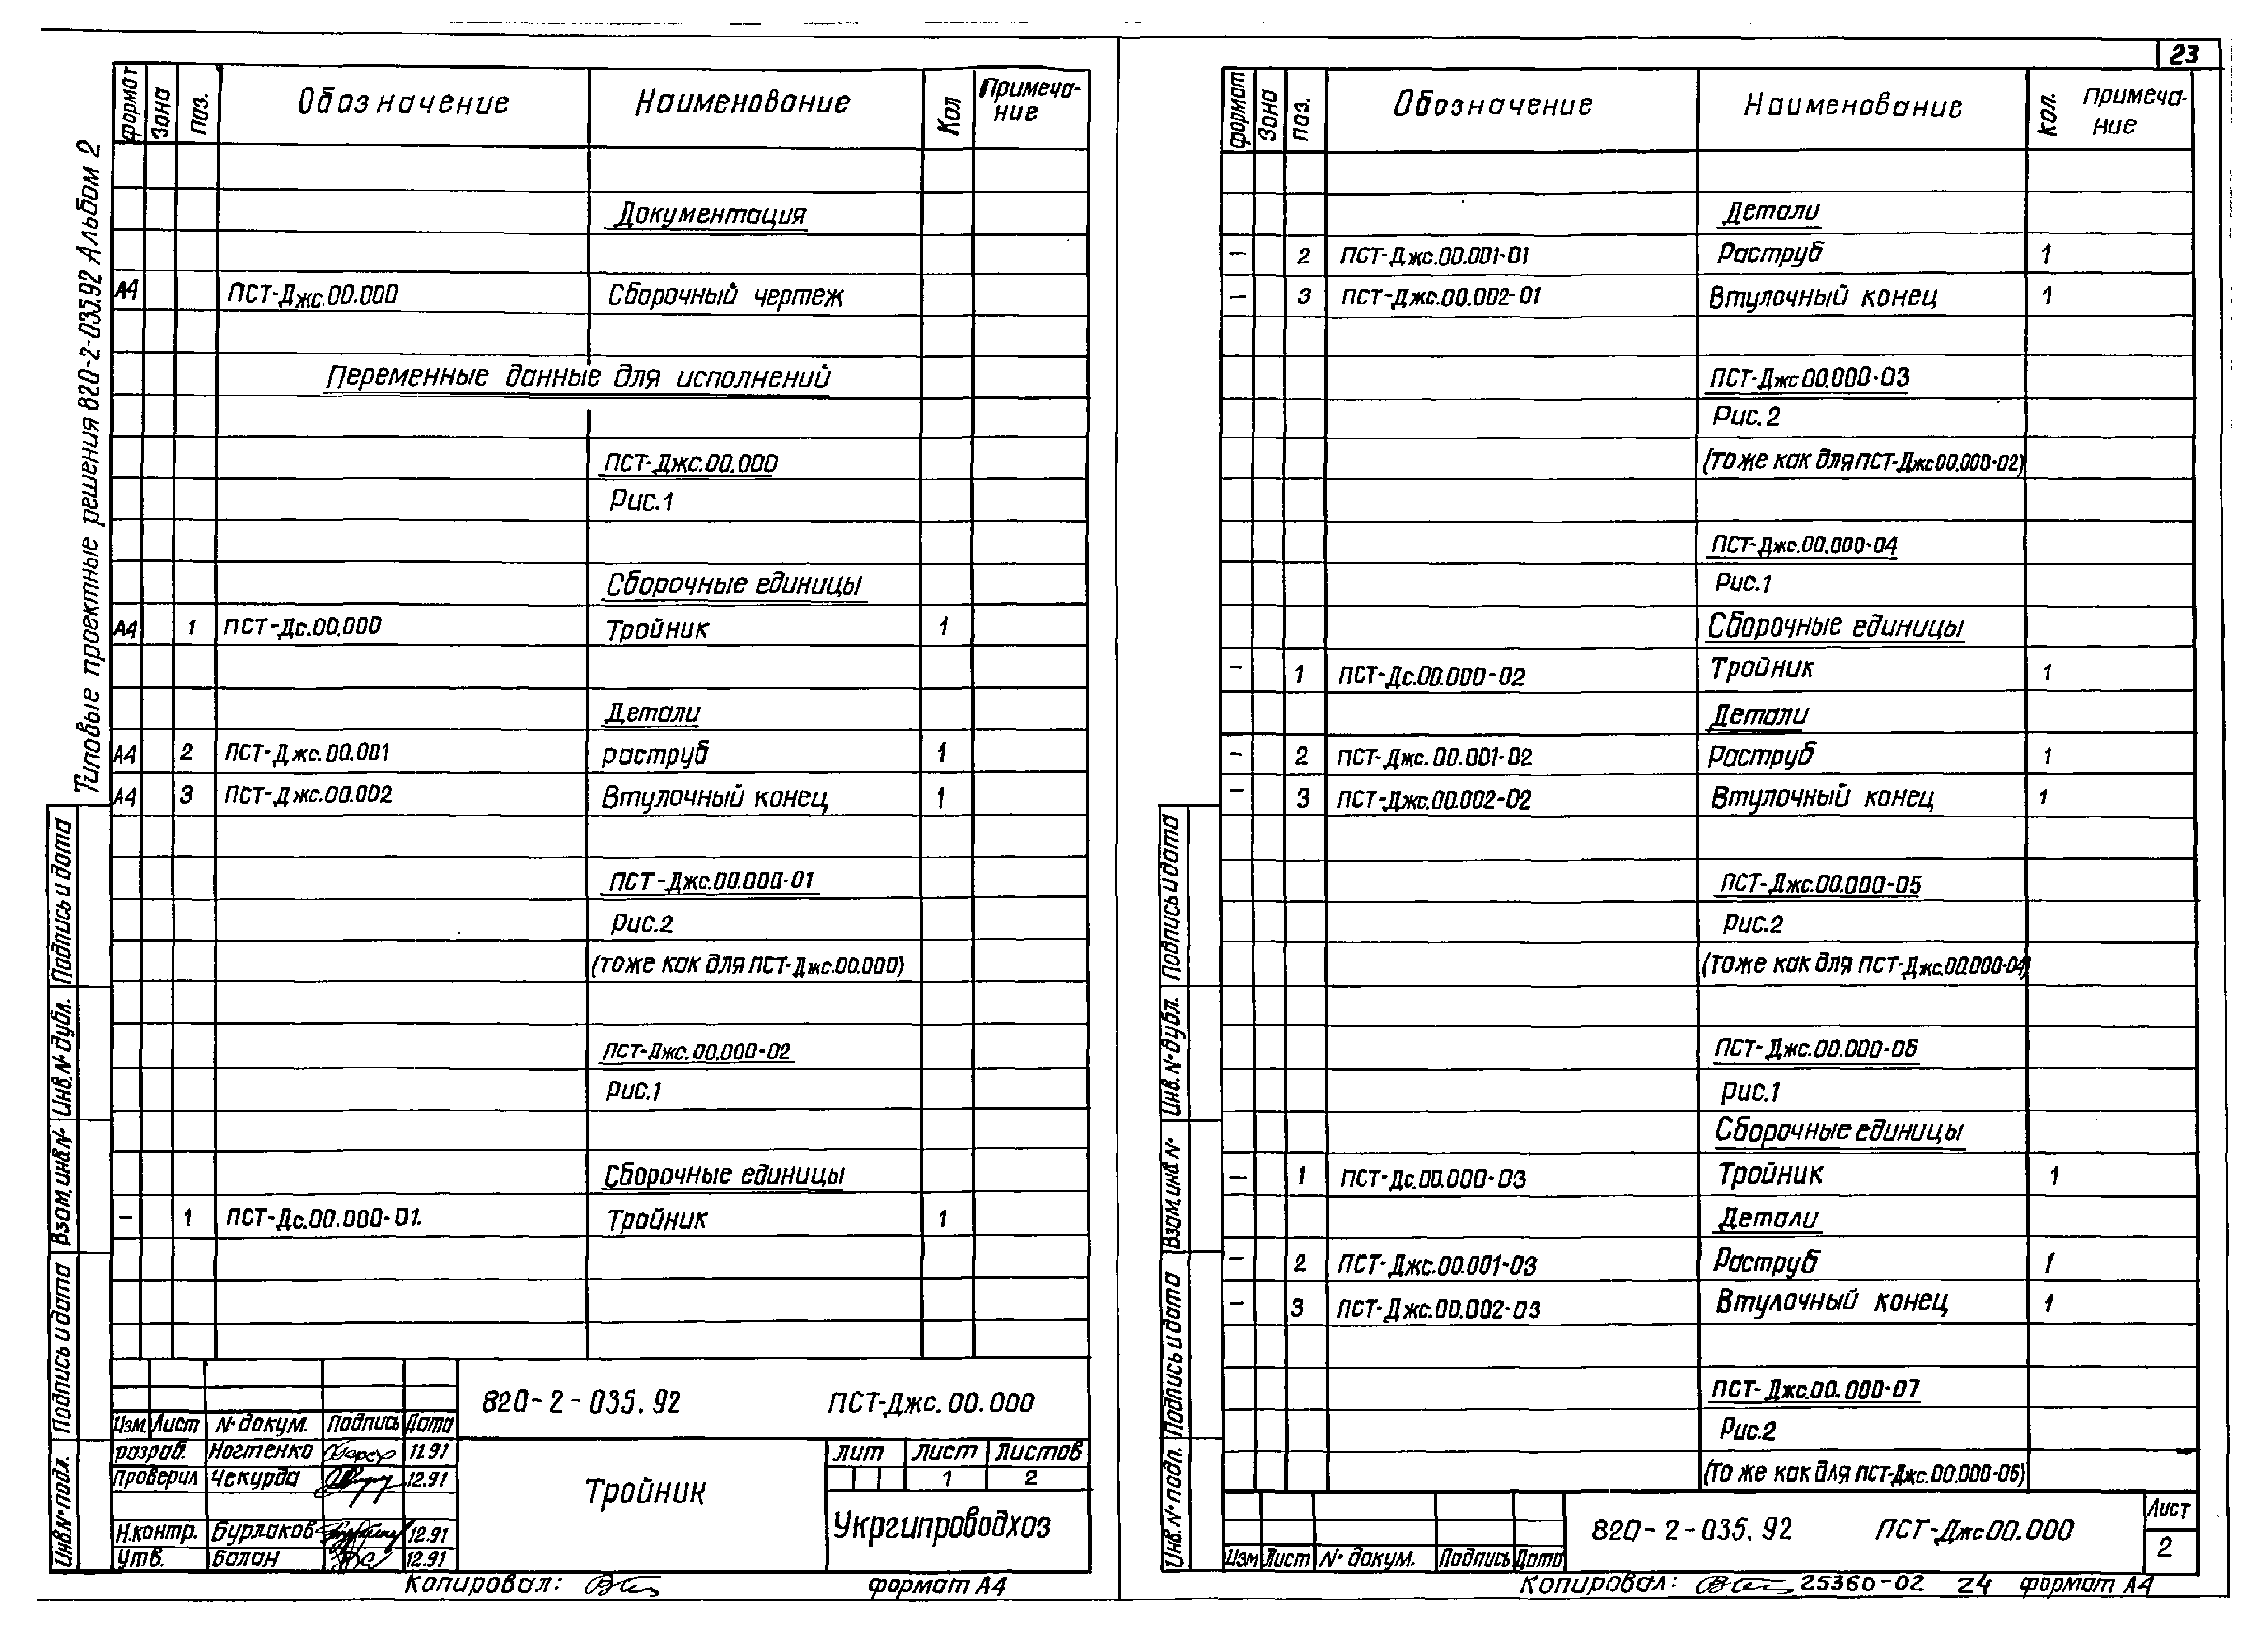 23
Типовые проектные решения 820-2-035.92 Альбом 2
формат Зона Поз. Обозначение Наименование Кол Примеча-
ние
Документация
А4 ПСТ-Джс.00.000 Сборочный чертеж
Переменные данные для исполнений
ПСТ-Джс.00.000
Рис.1
Сборочные единицы
А4 1 ПСТ-Дс.00.000 Тройник 1
Детали
А4 2 ПСТ-Джс.00.001 раструб 1
А4 3 ПСТ-Джс.00.002 Втулочный конец 1
ПСТ-Джс.00.000-01
Рис.2
(тоже как для ПСТ-Джс.00.000)
ПСТ-Джс.00.000-02
Рис.1
Сборочные единицы
- 1 ПСТ-Дс.00.000-01. Тройник 1
Подпись и дата
Инв.№ дубл.
Взам.инв.№
Подпись и дата
Инв.№ подл.
820-2-035.92 ПСТ-Джс.00.000
Изм. Лист № докум. Подпись Дата
разраб. Ногтенко 11.91
Проверил Чекурда 12.91
Н.контр. Бурлаков 12.91
Утв. балан 12.91
Тройник
лит лист листов
1 2
Укргипроводхоз
Копировал: формат А4
формат Зона поз. Обозначение Наименование кол. примеча-
ние
Детали
- 2 ПСТ-Джс.00.001-01 Раструб 1
- 3 ПСТ-Джс.00.002-01 Втулочный конец 1
ПСТ-Джс00.000-03
Рис.2
(тоже как для ПСТ-Джс00.000-02)
ПСТ-Джс.00.000-04
Рис.1
Сборочные единицы
- 1 ПСТ-Дс.00.000-02 Тройник 1
Детали
- 2 ПСТ-Джс.00.001-02 Раструб 1
- 3 ПСТ-Джс.00.002-02 Втулочный конец 1
ПСТ-Джс.00.000-05
Рис.2
(тоже как для ПСТ-Джс.00.000-04)
ПСТ-Джс.00.000-06
Рис.1
Сборочные единицы
- 1 ПСТ-Дс.00.000-03 Тройник 1
Детали
- 2 ПСТ-Джс.00.001-03 Раструб 1
- 3 ПСТ-Джс.00.002-03 Втулочный конец 1
ПСТ-Джс.00.000-07
Рис.2
(То же как для ПСТ-Джс.00.000-06)
Подпись и дата
Инв.№ дубл.
Взам.инв.№
Подпись и дата
Инв.№ подл.
820-2-035.92 ПСТ-Джс00.000
Лист
2
Изм Лист № докум. Подпись Дата
Копировал: 25360-02 24 формат А4